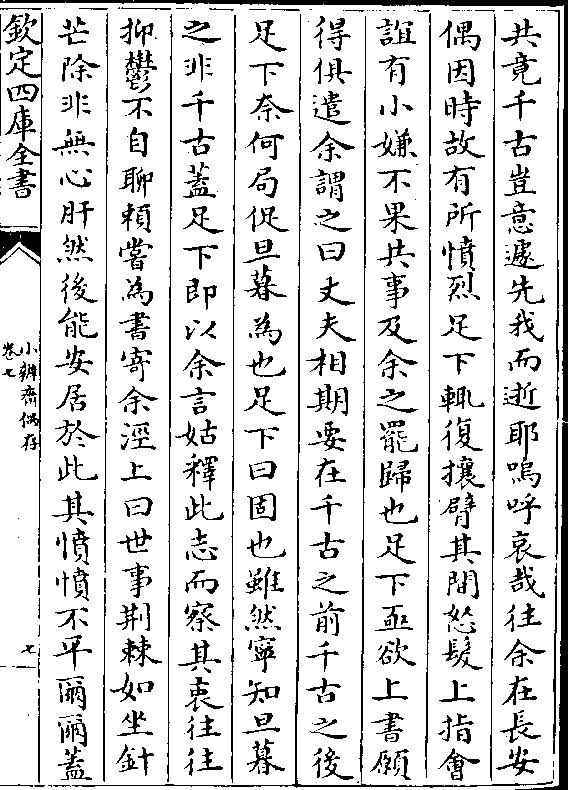 共竟千古豈意遽先我而逝耶嗚呼哀哉往余在長安
偶因時故有所憤烈足下輒復攘臂其間怒髮上指會
誼有小嫌不果共事及余之罷歸也足下亟欲上書願
得俱遣余謂之曰丈夫相期要在千古之前千古之後
足下奈何局促旦暮為也足下曰固也雖然寧知旦暮
之非千古蓋足下即以余言姑釋此志而察其衷往往
抑鬱不自聊頼嘗為書寄余涇上曰世事荆棘如坐針
芒除非無心肝然後能安居於此其憤憤不平爾爾蓋
欽定四庫全書
小辨齋偶存
卷七
七